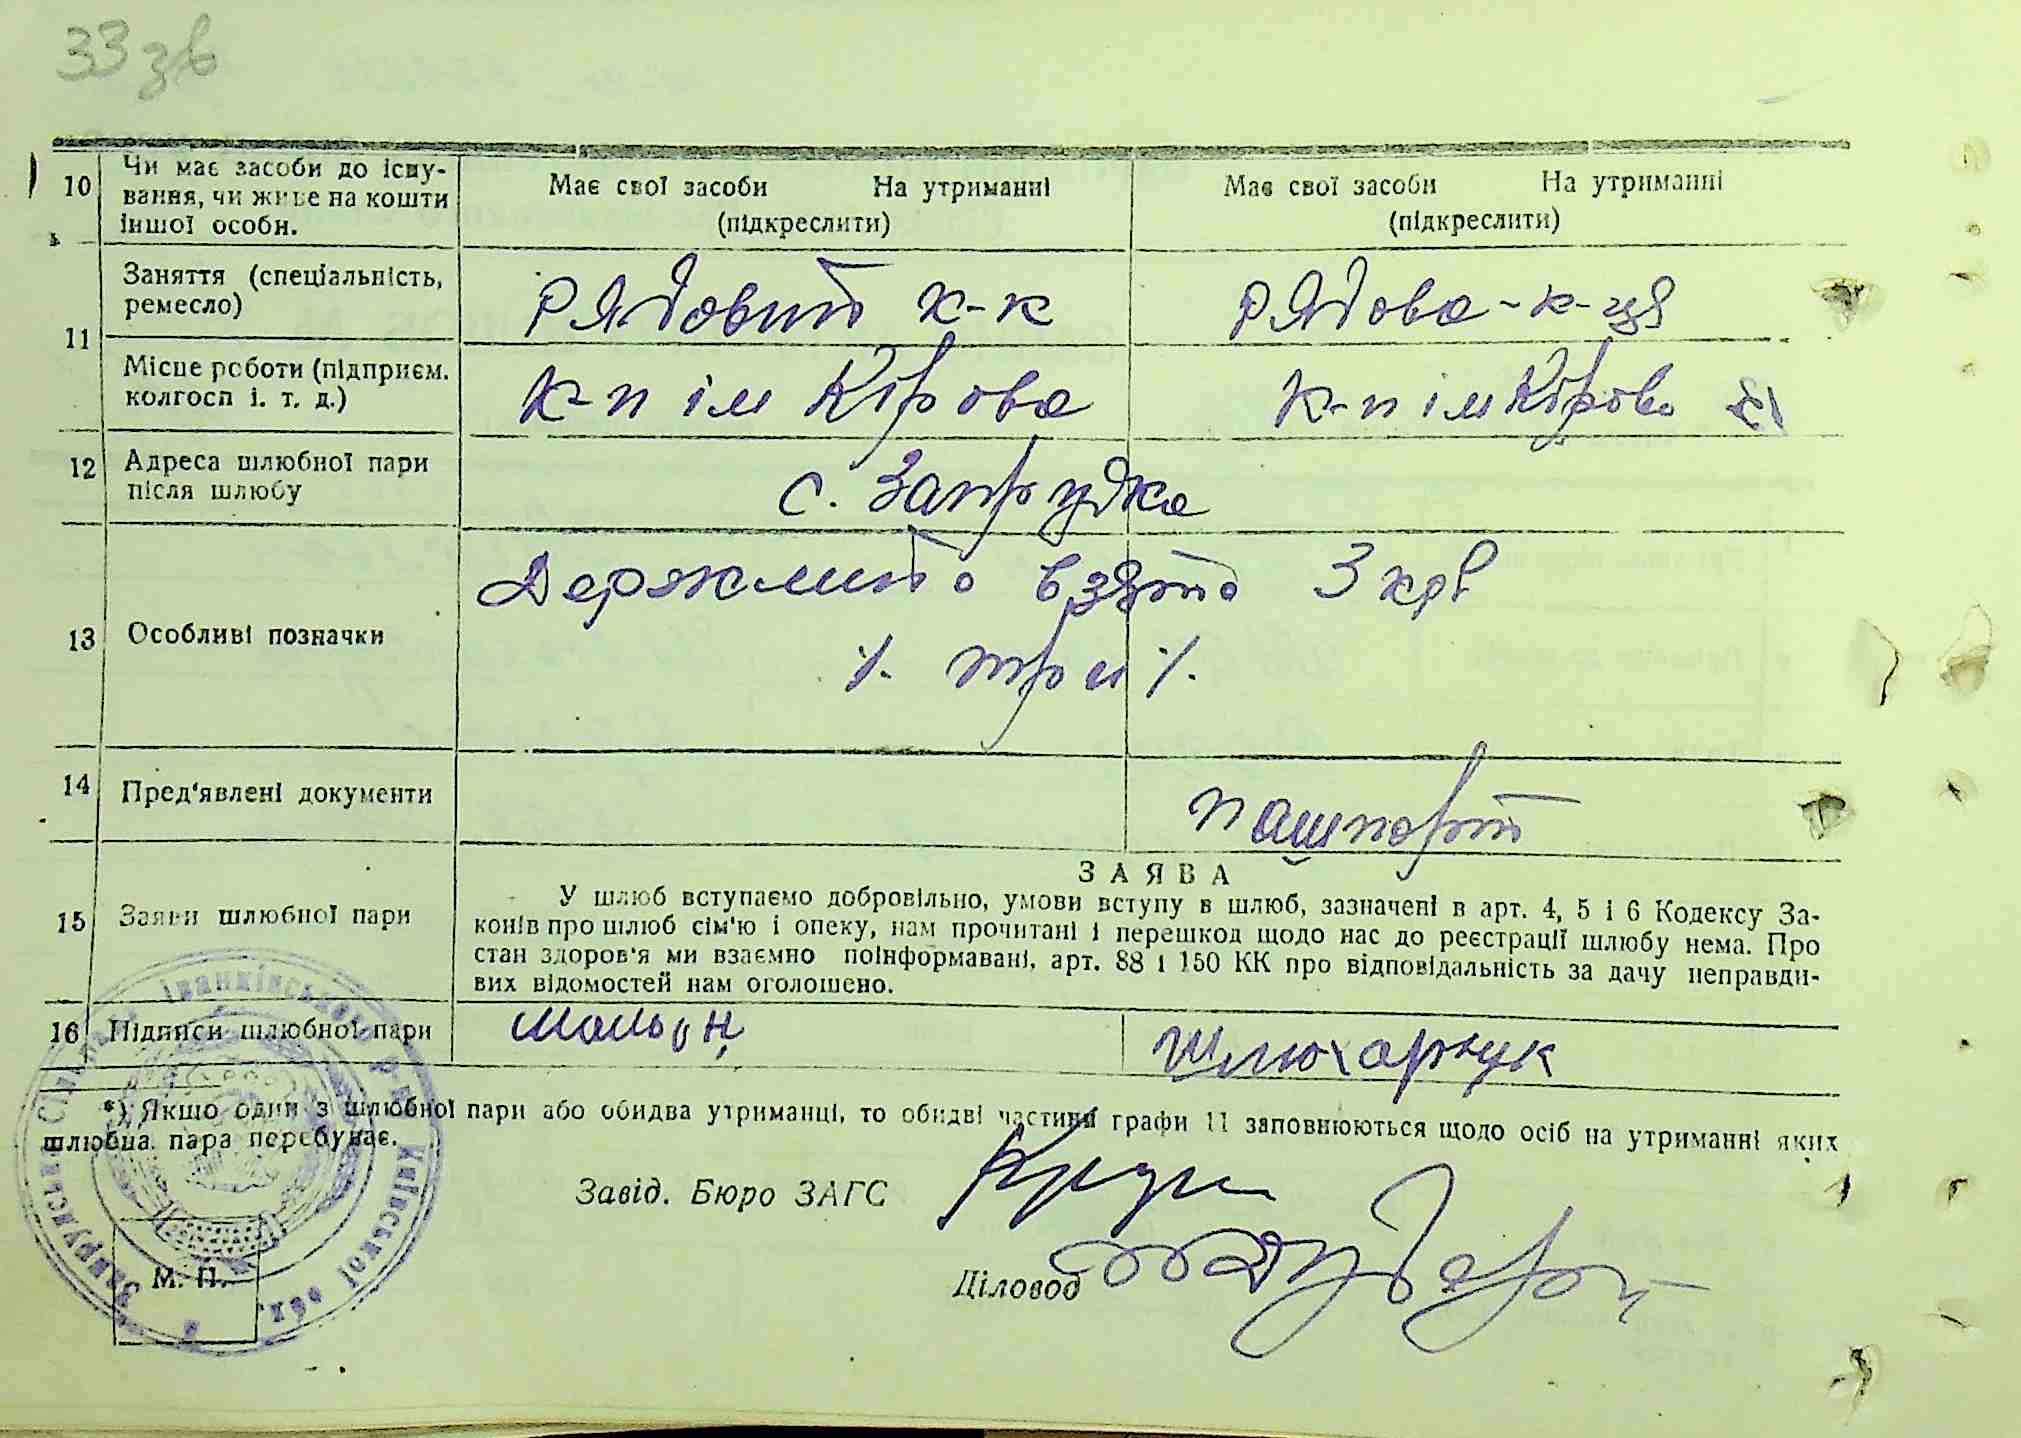 33 зв
10 Чи має засоби до існу-
вання, чи живе на кошти
іншої особи.
Має свої засоби На утриманні
(підкреслити)
Має свої засоби На утриманні
(підкреслити)
11 Заняття (спеціальність,
ремесло)
Рядовий к-к
Рядова-к-ця
Місце роботи (підприєм.
колгосп і. т. д.)
К-п ім Кірова
К-п ім Кірова
12 Адреса шлюбної пари
після шлюбу
с. Запрудка
13 Особливі позначки
Держмито взято 3 крв
٪. три ٪.
14 Пред'явлені документи
пашпорт
15 Заяви шлюбної пари
ЗАЯВА
У шлюб вступаємо добровільно, умови вступу в шлюб, зазначені в арт. 4, 5 і 6 Кодексу За-
конів про шлюб сім'ю і опеку, нам прочитані і перешкод щодо нас до реєстрації шлюбу нема. Про
стан здоров'я ми взаємно поінформавані, арт. 88 і 150 КК про відповідальність за дачу неправди-
вих відомостей нам оголошено.
16 Підписи шлюбної пари
Шлюхарчук
*) Якщо один з шлюбної пари або обидва утриманці, то обидві частини графи 11 заповнюються щодо осіб на утриманні яких
шлюбна пара перебуває.
Завід. Бюро ЗАГС
Діловод
М. П.
Іванківського р-на Київської обл.